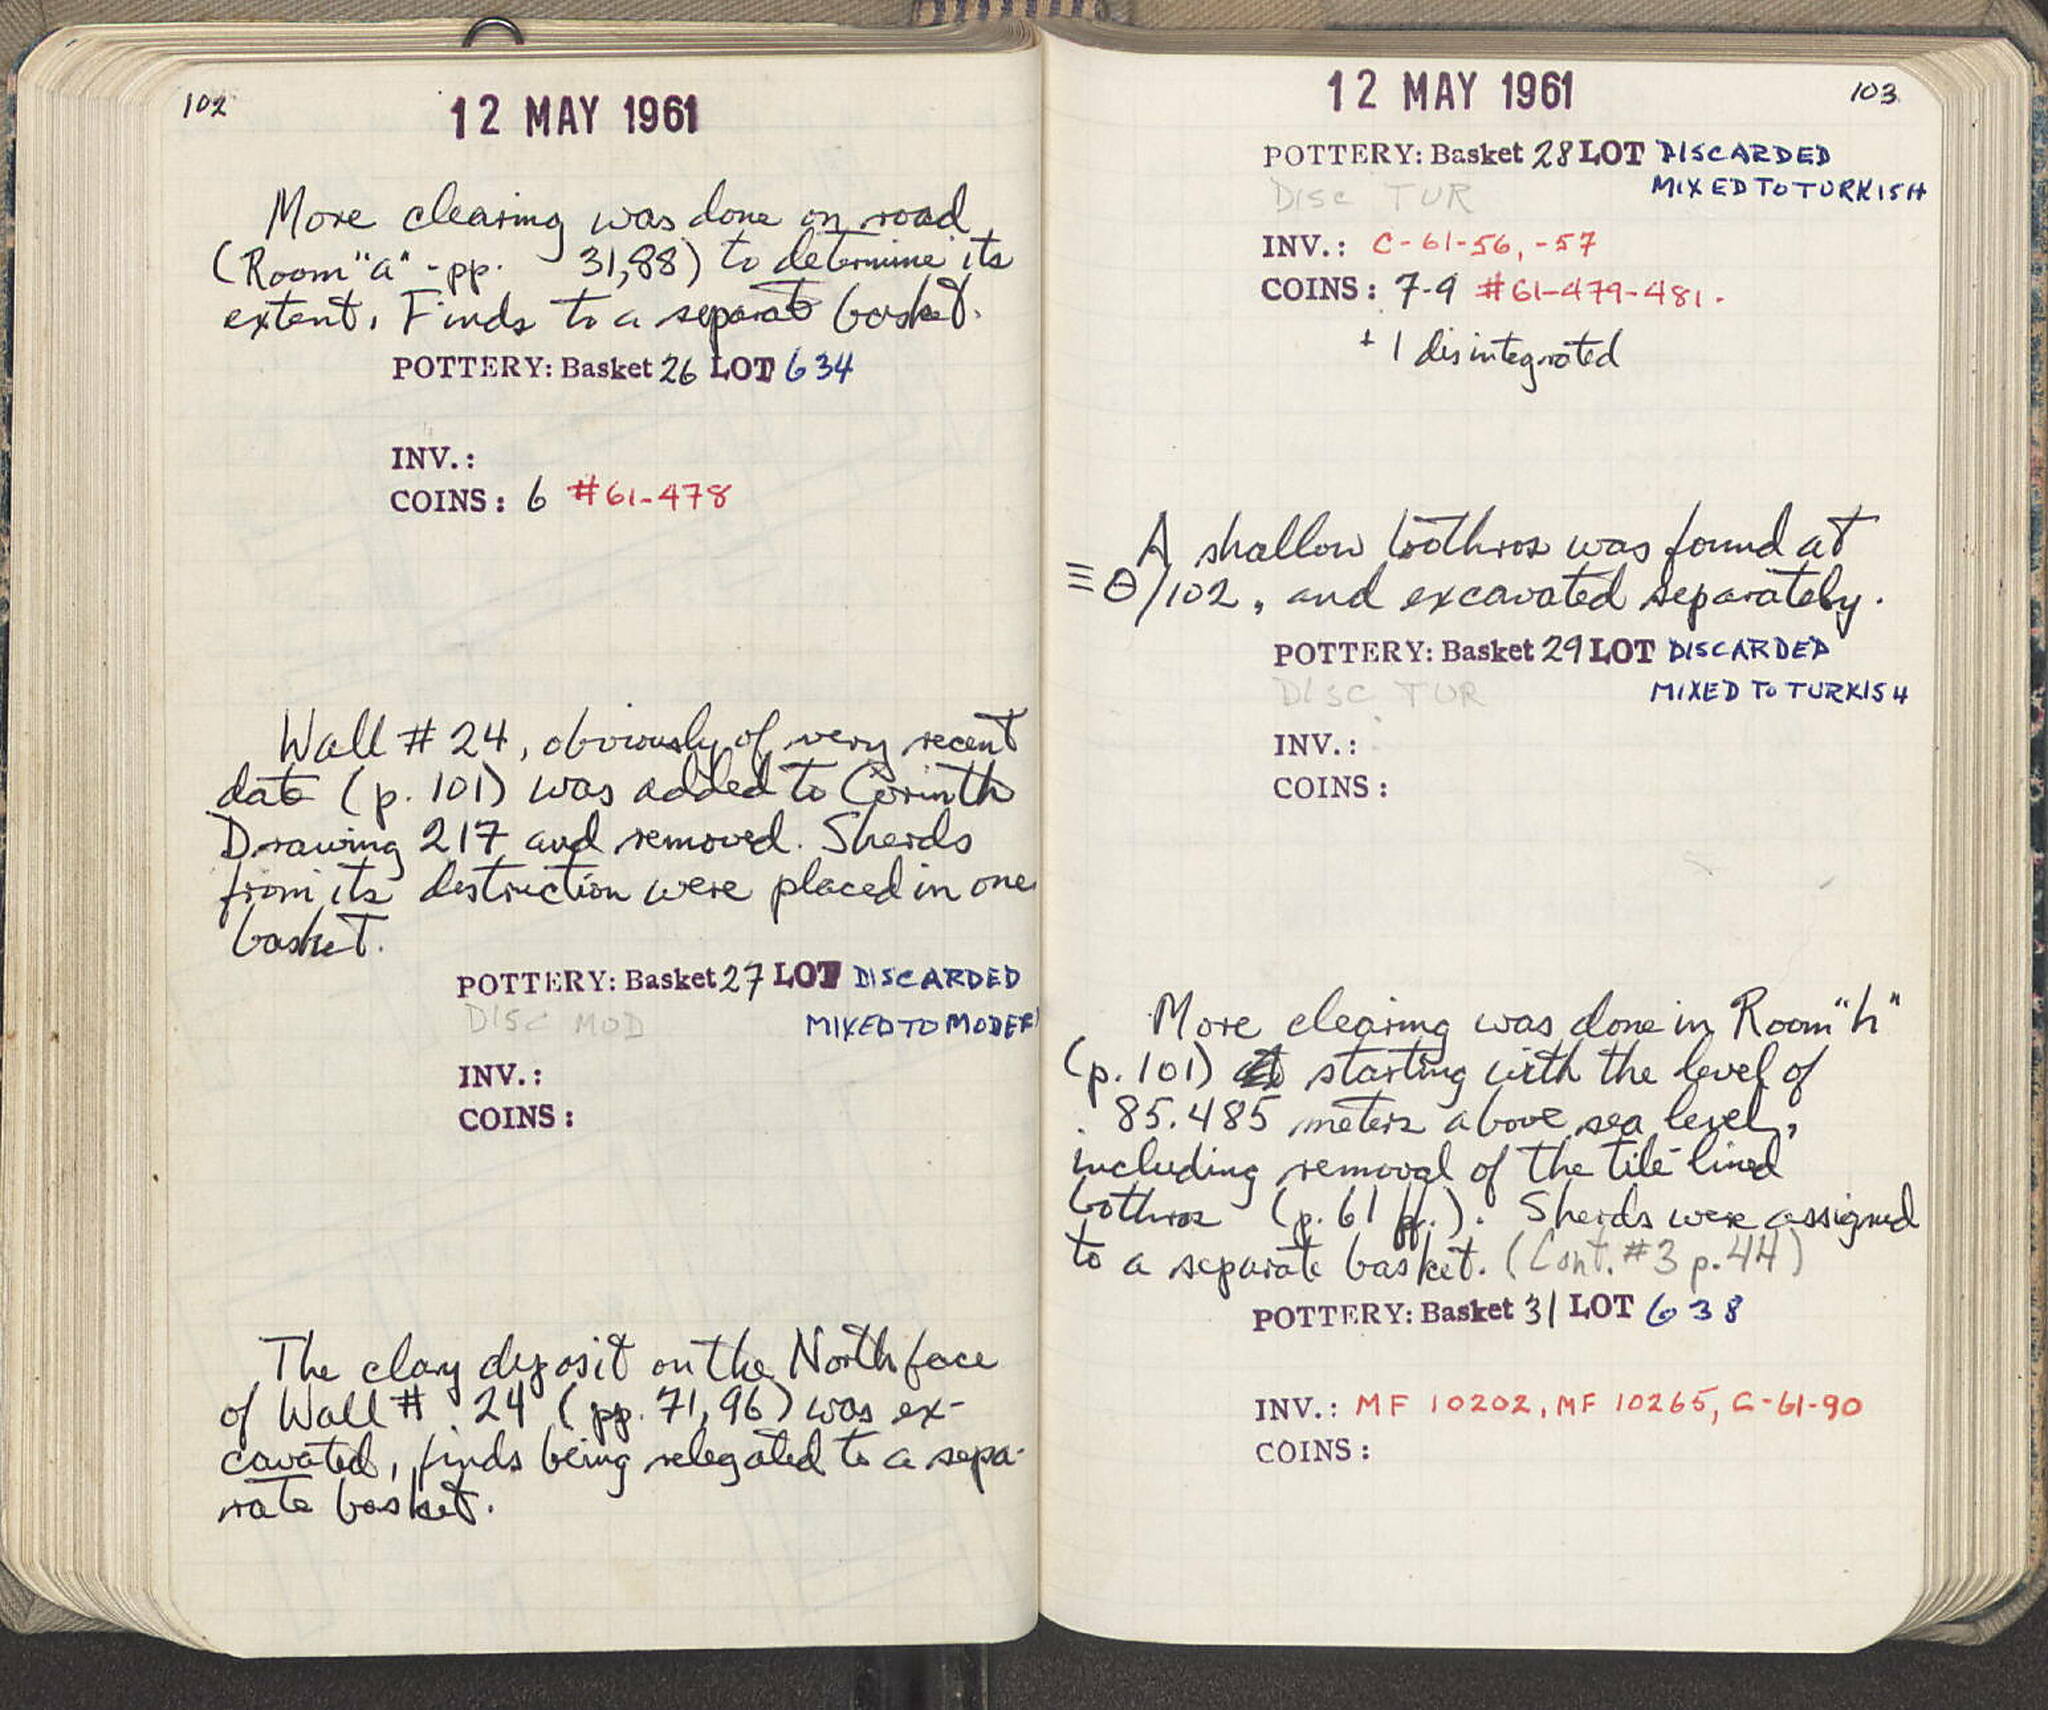 102
12 MAY 1961
More clearing was done on road
(Room "a" - pp. 31,88) to determine its
extent. Finds to a separate basket.
POTTERY: Basket 26 LOT 634
INV.:
COINS: 6 #61-478
Wall # 24, obviously of very recent
date (p. 101) was added to Corinth
Drawing 217 and removed. Sherds
from its destruction were placed in one
basket.
POTTERY: Basket 27 LOT DISCARDED
DISC MOD MIXED TO MODER
INV.:
COINS:
The clay deposit on the North face
of Wall # 24 (pp. 71, 96) was ex-
cavated, finds being relegated to a sepa-
rate basket.
12 MAY 1961
103
POTTERY: Basket 28 LOT DISCARDED
DISC TUR MIXED TO TURKISH
INV.: C-61-56, -57
COINS: 7-9 #61-479-481.
+ 1 disintegrated
A shallow bothros was found at
≡ Θ/102, and excavated separately.
POTTERY: Basket 29 LOT DISCARDED
DISC TUR MIXED TO TURKISH
INV.:
COINS:
More clearing was done in Room "h"
(p. 101) starting with the level of
85.485 meters above sea level,
including removal of the tile-lined
bothros (p. 61 ff.). Sherds were assigned
to a separate basket. (Cont. #3 p. 44)
POTTERY: Basket 31 LOT 638
INV.: MF 10202, MF 10265, C-61-90
COINS: